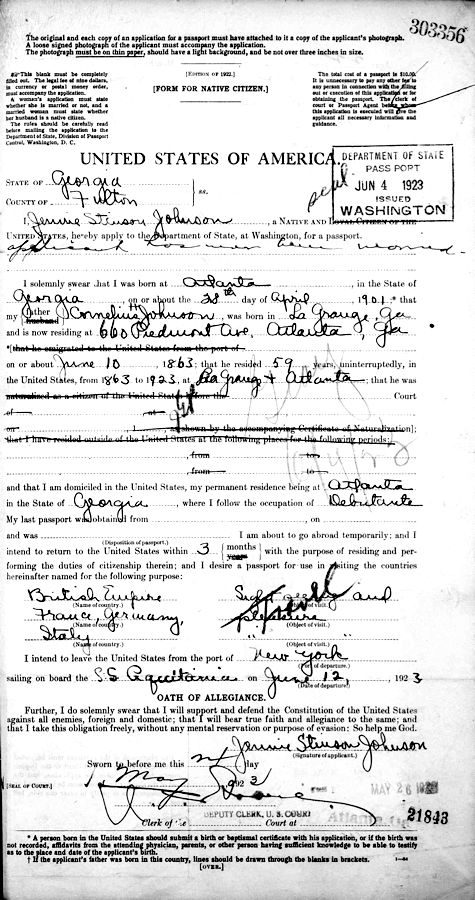 303356
The original and each copy of an application for a passport must have attached to it a copy of the applicant's photograph.
A loose signed photograph of the applicant must accompany the application.
The photograph must be on thin paper, should have a light background, and be not over three inches in size.
This blank must be completely
filled out. The legal fee of nine dollars,
in currency or postal money order,
must accompany the application.
A woman's application must state
whether she is married or not, and a
married woman must state whether
her husband is a native citizen.
The rules should be carefully read
before mailing the application to the
Department of State, Division of Passport
Control, Washington, D. C.
[EDITION OF 1922.]
[FORM FOR NATIVE CITIZEN.]
The total cost of a passport is $10.00.
It is unnecessary to pay any other fee to
any person in connection with the filling
out or execution of this application or to
obtaining the passport. The clerk of
court or Passport Agent before whom
this application is executed will give the
applicant all necessary information and
guidance.
UNITED STATES OF AMERICA.
DEPARTMENT OF STATE
PASSPORT
JUN 4 1923
ISSUED
WASHINGTON
STATE OF Georgia
COUNTY OF Fulton
ss.
I, Jennie Stinson Johnson, a NATIVE AND LOYAL CITIZEN OF THE
UNITED STATES, hereby apply to the Department of State, at Washington, for a passport.
applicant has never been married
I solemnly swear that I was born at Atlanta, in the State of
Georgia on or about the 28th day of April, 1901;* that
my {father husband} Cornelius H Johnson, was born in La Grange, Ga
and is now residing at 660 Piedmont Ave, Atlanta, Ga
*[that he emigrated to the United States from the port of
on or about June 10, 1863; that he resided 59 years, uninterruptedly, in
the United States, from 1863 to 1923, at La Grange & Atlanta; that he was
naturalized as a citizen of the United States before the Court
of at
on, 1, as shown by the accompanying Certificate of Naturalization];
that I have resided outside of the United States at the following places for the following periods:
, from to
, from to
and that I am domiciled in the United States, my permanent residence being at Atlanta
in the State of Georgia, where I follow the occupation of Debutante
My last passport was obtained from, on
and was I am about to go abroad temporarily; and I
(Disposition of passport.)
intend to return to the United States within 3 {months years} with the purpose of residing and per-
forming the duties of citizenship therein; and I desire a passport for use in visiting the countries
hereinafter named for the following purpose:
British Empire Sight seeing and
(Name of country.) (Object of visit.)
France, Germany, pleasure
(Name of country.) (Object of visit.)
Italy " "
(Name of country.) (Object of visit.)
I intend to leave the United States from the port of New York
(Port of departure.)
sailing on board the S.S. Aquitania on June 12, 1923
(Date of departure.)
OATH OF ALLEGIANCE.
Further, I do solemnly swear that I will support and defend the Constitution of the United States
against all enemies, foreign and domestic; that I will bear true faith and allegiance to the same; and
that I take this obligation freely, without any mental reservation or purpose of evasion: So help me God.
Jennie Stinson Johnson
(Signature of applicant.)
Sworn to before me this day
[SEAL OF COURT.] May, 1923
MAY 26 1923
DEPUTY CLERK, U. S. COURT
Clerk of the Court at
21843
* A person born in the United States should submit a birth or baptismal certificate with his application, or if the birth was
not recorded, affidavits from the attending physician, parents, or other person having sufficient knowledge to be able to testify
as to the place and date of the applicant's birth.
† If the applicant's father was born in this country, lines should be drawn through the blanks in brackets.
[OVER.]